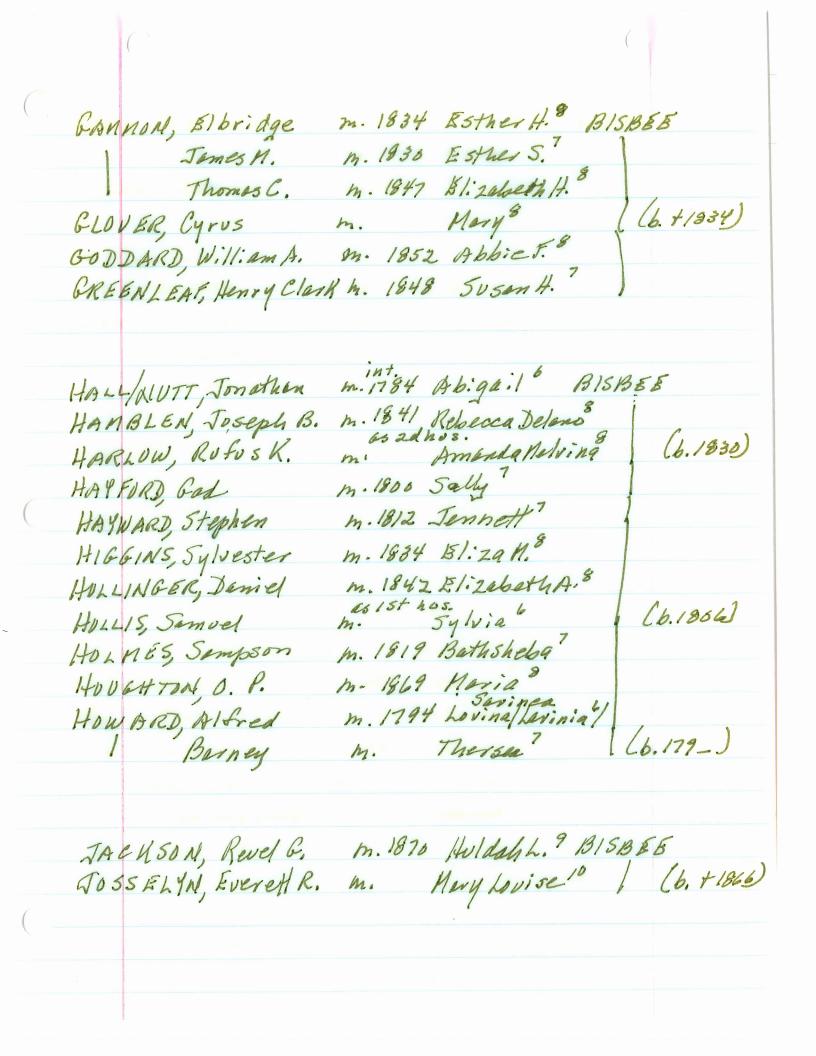 GANNON, Elbridge m. 1834 Esther H.⁸ BISBEE
| James M. m. 1830 Esther S.⁷
| Thomas C. m. 1847 Elizabeth H.⁸
GLOVER, Cyrus m. Mary⁸ (b. +1834)
GODDARD, William A. m. 1852 Abbie F.⁸
GREENLEAF, Henry Clark m. 1848 Susan H.⁷
int.
HALL/NUTT, Jonathan m. 1784 Abigail⁶ BISBEE
HAMBLEN, Joseph B. m. 1841 Rebecca Delano⁸
as 2d hus.
HARLOW, Rufus K. m. Amanda Melvina⁸ (b. 1830)
HAYFORD, Gad m. 1800 Sally⁷
HAYWARD, Stephen m. 1812 Jennett⁷
HIGGINS, Sylvester m. 1834 Eliza M.⁸
HOLLINGER, Daniel m. 1842 Elizabeth A.⁸
as 1st hus.
HOLLIS, Samuel m. Sylvia⁶ (b. 1806)
HOLMES, Sampson m. 1819 Bathsheba⁷
HOUGHTON, O. P. m. 1869 Maria⁸
Savinea
HOWARD, Alfred m. 1794 Lovina/Lavinia⁶/
| Barney m. Thersea⁷ (b. 179_)
JACKSON, Revel G. m. 1870 Huldah L.⁹ BISBEE
JOSSELYN, Everett R. m. Mary Louise¹⁰ | (b. +1866)